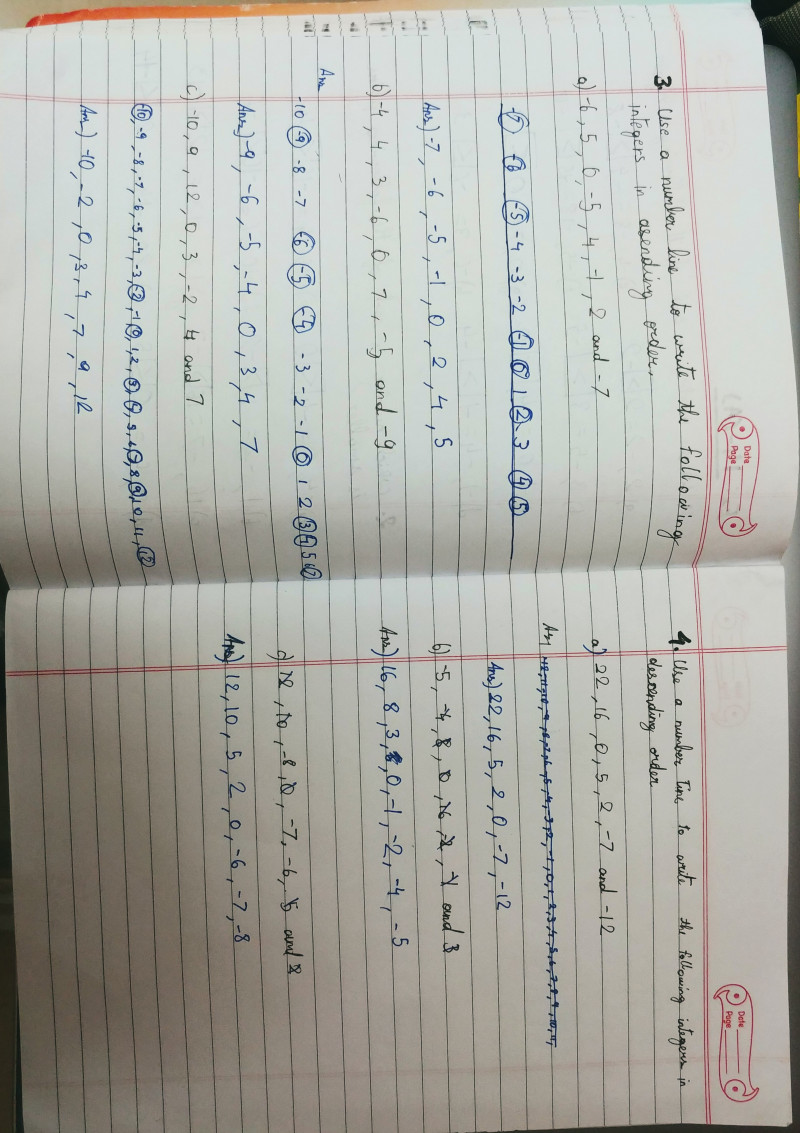 Date
Page
3. Use a number line to write the following
integers in asending order.
a) -6, 5, 0, -5, 4, -1, 2 and -7
-7 -6 -5 -4 -3 -2 -1 0 1 2 3 4 5
Ans) -7, -6, -5, -1, 0, 2, 4, 5
b) -4, 4, 3, -6, 0, 7, -5 and -9
Ans
-10 -9 -8 -7 -6 -5 -4 -3 -2 -1 0 1 2 3 4 5
Ans) -9, -6, -5, -4, 0, 3, 4, 7
c) -10, 9, 12, 0, 3, -2, 4 and 7
-10, -9, -8, -7, -6, -5, -4, -3, -2, -1, 0, 1, 2, 3, 4, 5, 6, 7, 8, 9, 10, 11, 12
Ans) -10, -2, 0, 3, 4, 7, 9, 12
Date
Page
4. Use a number line to write the following integers in
desending order
a) 22, 16, 0, 5, 2, -7 and -12
Ans
Ans) 22, 16, 5, 2, 0, -7, -12
b) -5, -4, 8, 0, 16, -2, -1 and 3
Ans) 16, 8, 3, 0, -1, -2, -4, -5
c) 12, 10, -8, 0, -7, -6, 5 and 2
Ans) 12, 10, 5, 2, 0, -6, -7, -8